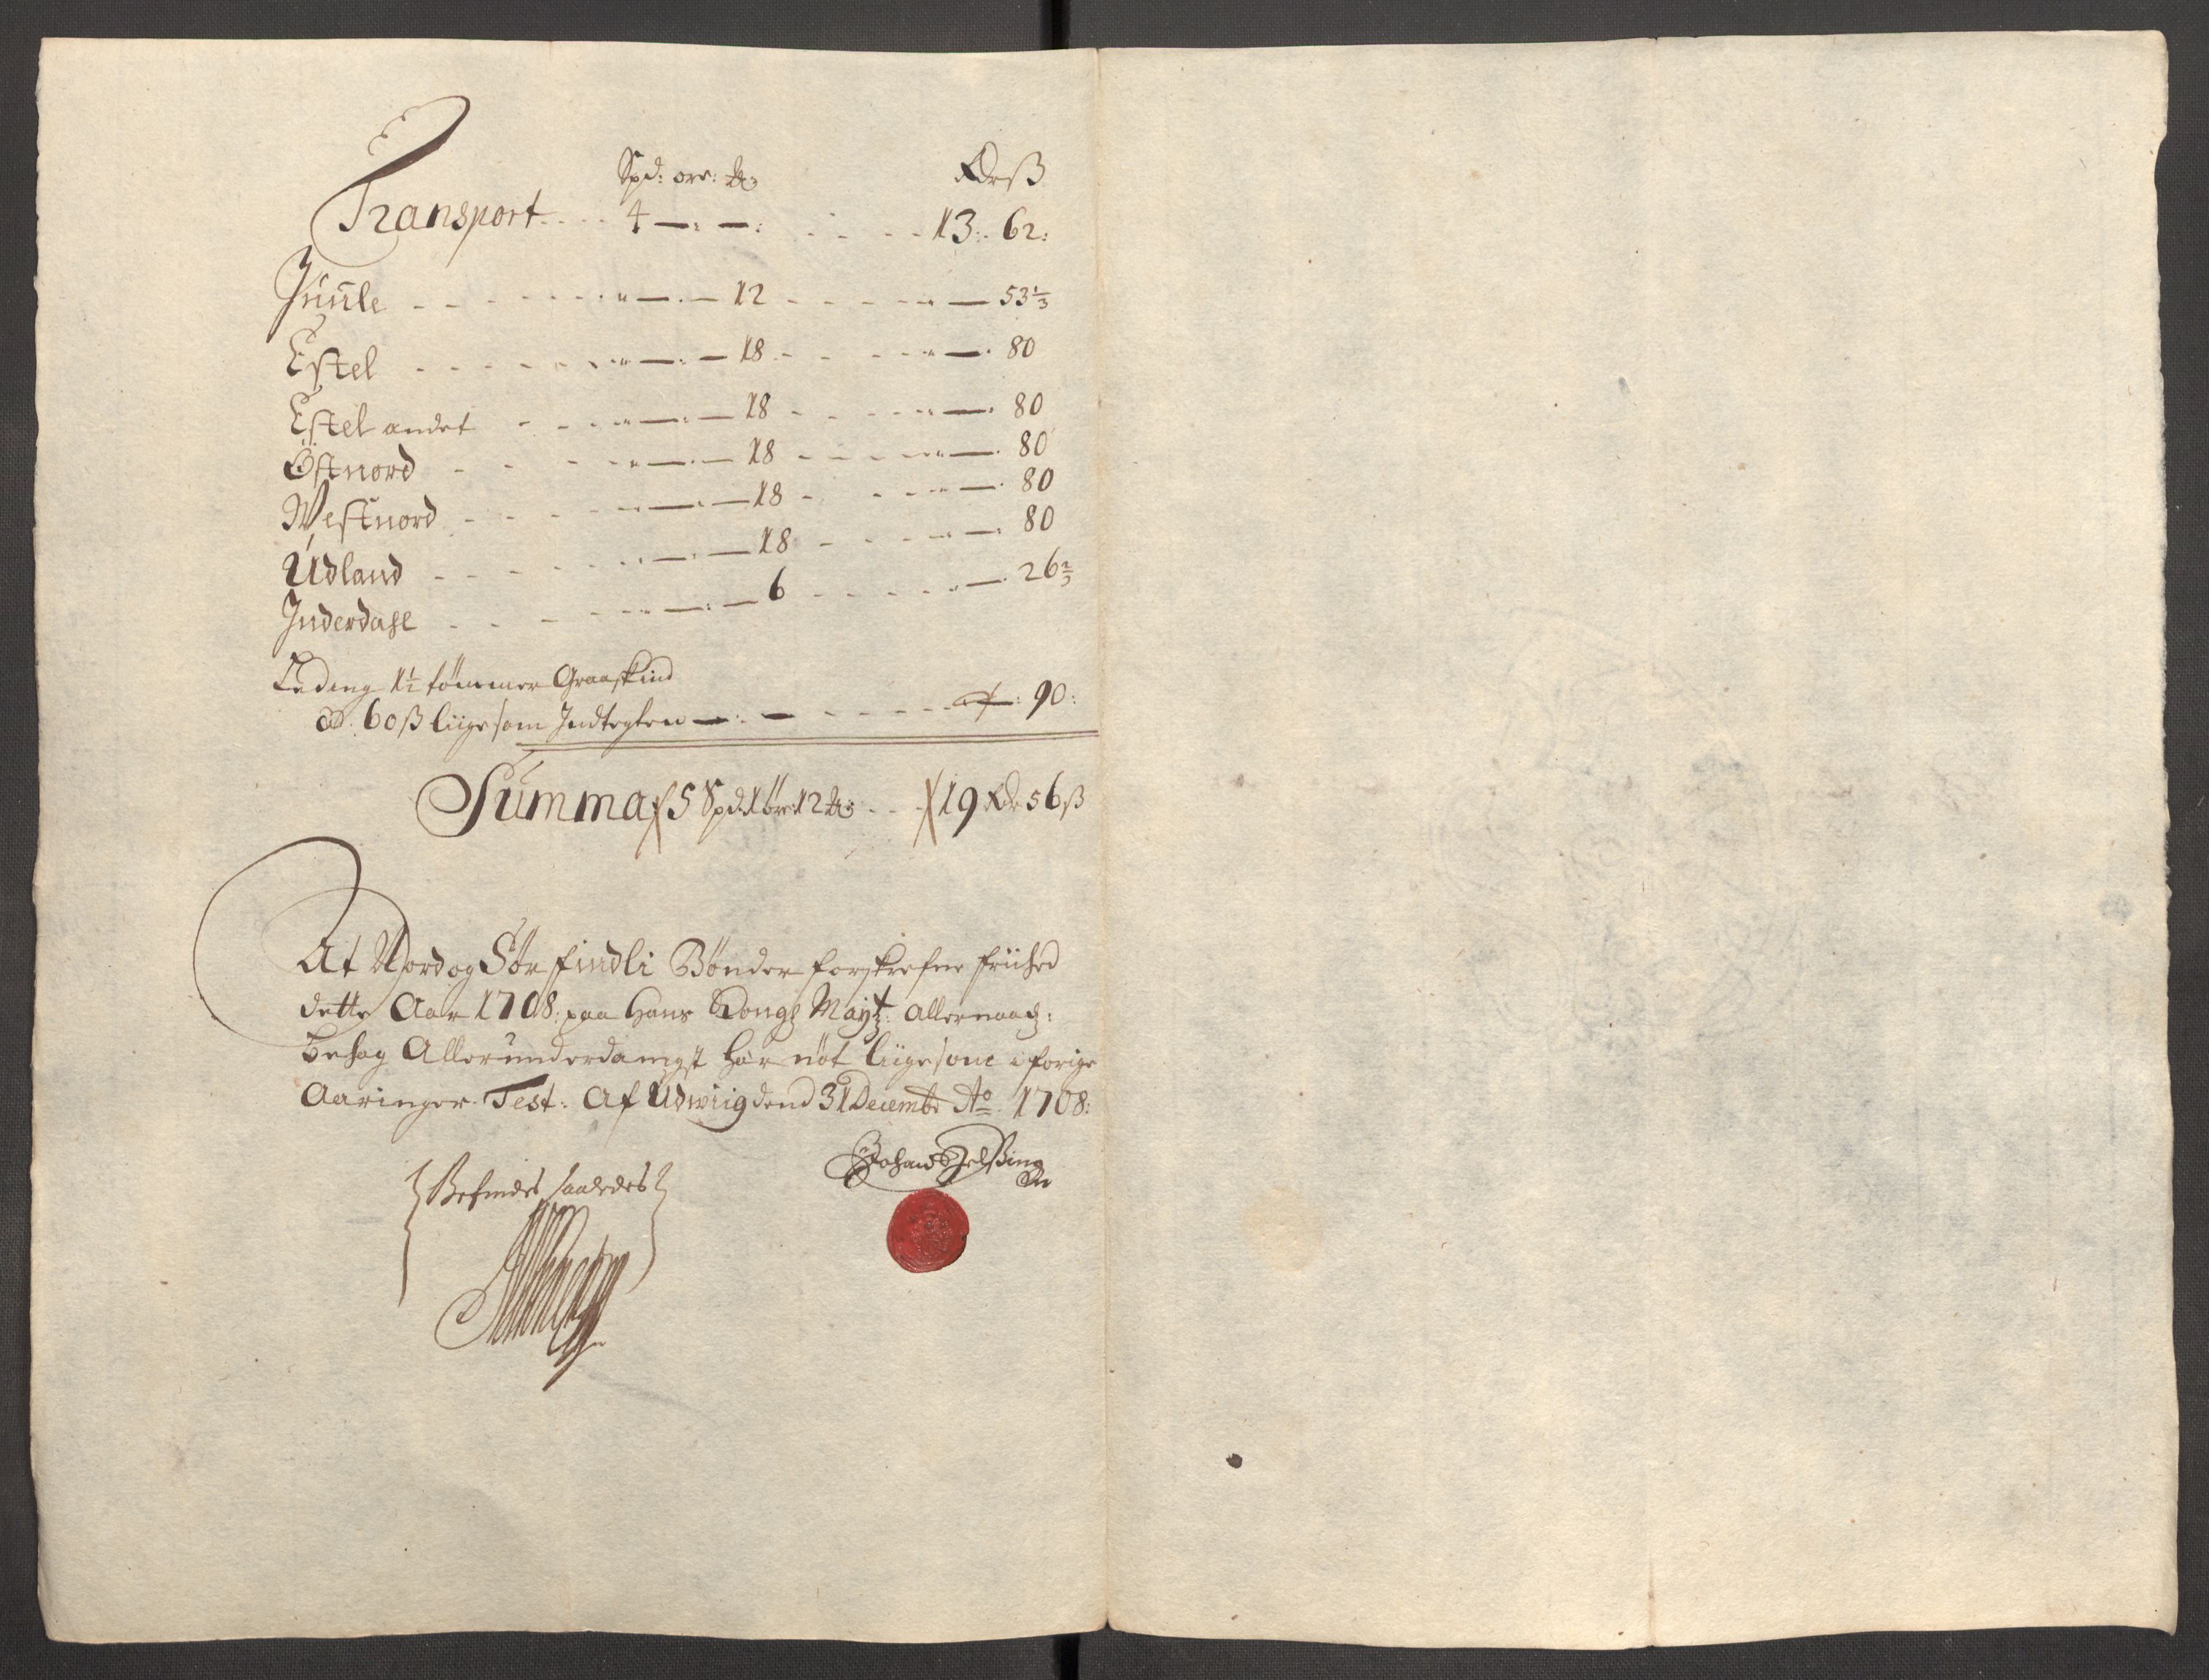 Spd: ore: ℔: Rdr ß
Transport - - - 4 —: —: - - - - 13: 62:
Juule - - - - - - " —. — 12 - - - - " — 53 1/3
Estel - - - - - - " —: — 18 - - - - " —. 80
Estel andet - - - " —: — 18 - - - - " —. 80
Östnord - - - - " —. — 18 - - - - " —. 80
Westnord - - - - " —. — 18 - - - - " —. 80
Udland - - - - - " —. — 18 - - - - " —. 80
Inderdahl - - - - " —: — 6 - - - - " —. 26 2/3
Leding 1 1/2 tømmer Graaskind
ad. 60 ß liigesom Indtegten —: — - - - - - —: 90:
Summa 5 Spd: 1 öre 12 ℔: - - 19 Rdr 56 ß
At Nord og Sör findli Bönder forskrefne friihed
dette Aar 1708: paa Hans Kongl Mayt: Allernaadg:
behag Allerunderdanigst har nöt liigesom i forige
Aaringer. Test: Af Udwiig dend 31 Decembr Ao 1708:
Befindes saaledes